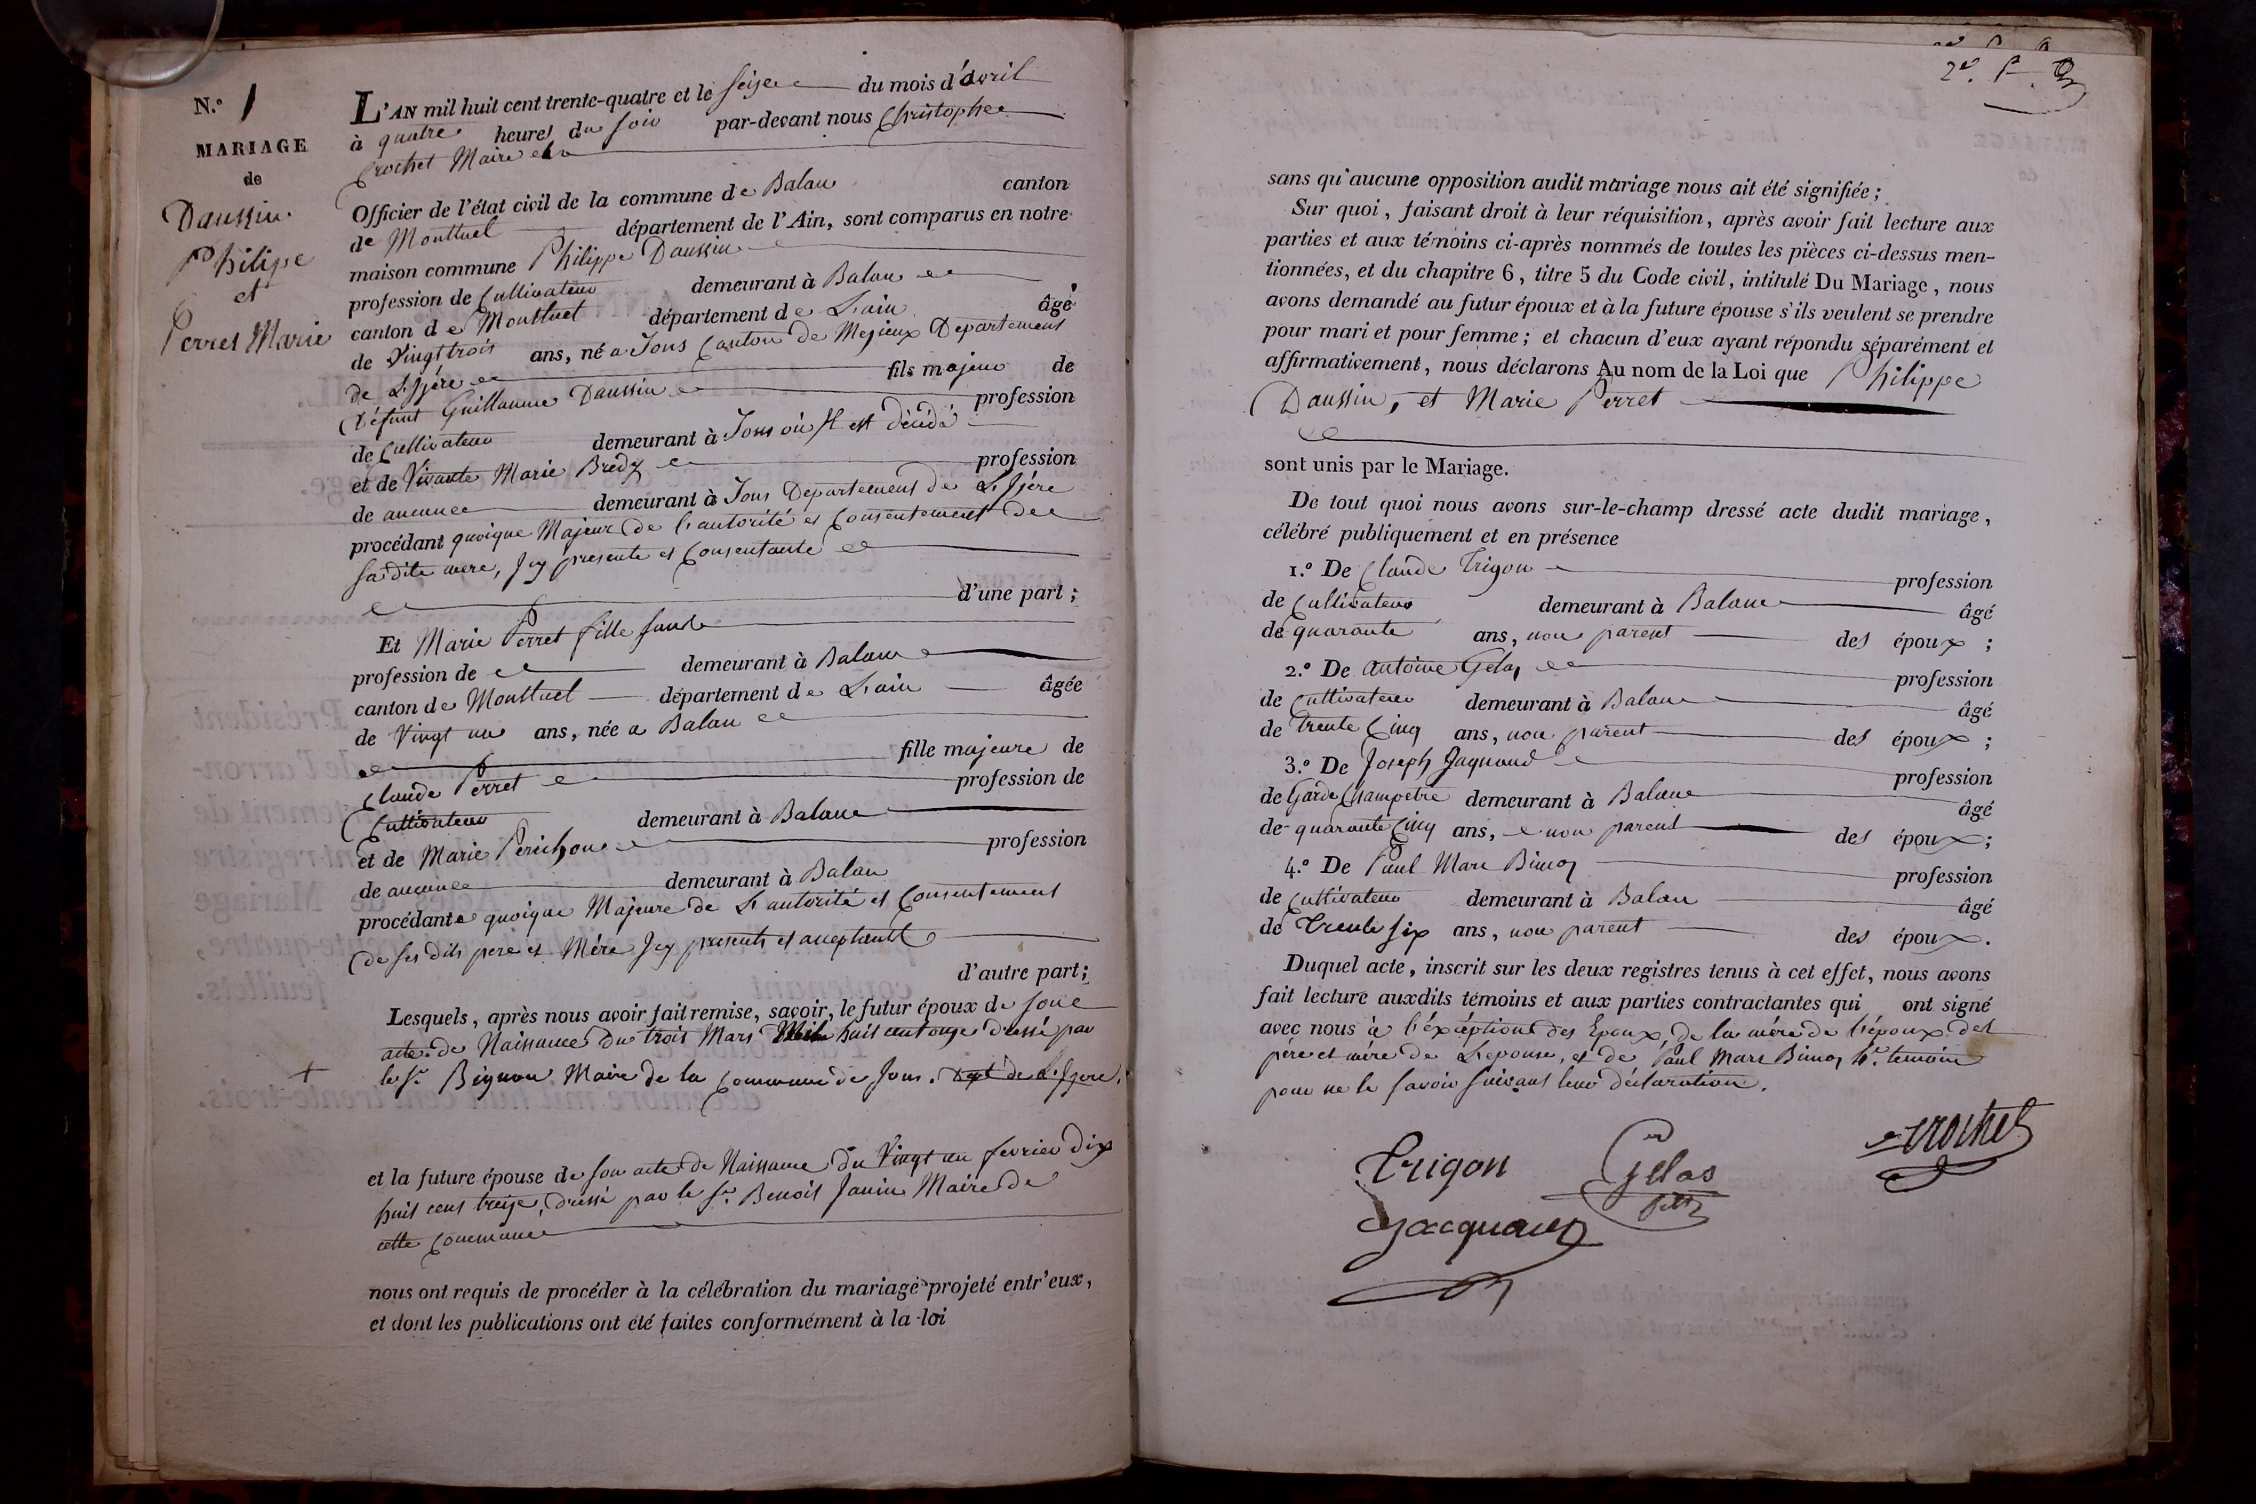 N.º 1
MARIAGE
de
Daussin
Philipe
et
Perret Marie
L'AN mil huit cent trente-quatre et le seize du mois d'avril
à quatre heures du soir par-devant nous Christophe
Crochet Maire
Officier de l'état civil de la commune de Balan canton
de Montluel département de l'Ain, sont comparus en notre
maison commune Philippe Daussin
profession de Cultivateur demeurant à Balan
canton de Montluel département de L'ain âgé
de Vingt trois ans, né a Jons Canton de Mezieux Departement
de L'Isère fils majeur de
Défunt Guillaume Daussin profession
de Cultivateur demeurant à Jons où il est décédé
et de Vivante Marie profession
de aucune demeurant à Jons Departement de L'Isère
procédant quoique Majeur de l'autorité et Consentement de
sa dite mere, Icy presente et Consentante
d'une part ;
Et Marie Perret fille sans
profession de demeurant à Balan
canton de Montluel département de L'ain âgée
de Vingt un ans, née a Balan
fille majeure de
Claude Perret profession de
Cultivateur demeurant à Balan
et de Marie Perichon profession
de aucune demeurant à Balan
procédante quoique Majeure de L'autorité et Consentement
de ses dits pere et Mére Icy presents et acceptants
d'autre part ;
Lesquels, après nous avoir fait remise, savoir, le futur époux de sone
acte de Naissance du trois Mars Mil huit cent onze dressé par
+ le Sr. Bignon Maire de la Commune de Jons. Dept de L'Isere.
et la future épouse de son acte de Naissance du Vingt un fevrier dix
huit cent treize, dressé par le Sr. Benoit Janin Maire de
cette Commune
nous ont requis de procéder à la célébration du mariage projeté entr'eux,
et dont les publications ont été faites conformément à la loi
2e. f
sans qu'aucune opposition audit mariage nous ait été signifiée ;
Sur quoi, faisant droit à leur réquisition, après avoir fait lecture aux
parties et aux témoins ci-après nommés de toutes les pièces ci-dessus men-
tionnées, et du chapitre 6, titre 5 du Code civil, intitulé Du Mariage, nous
avons demandé au futur époux et à la future épouse s'ils veulent se prendre
pour mari et pour femme ; et chacun d'eux ayant répondu séparément et
affirmativement, nous déclarons Au nom de la Loi que Philippe
Daussin, et Marie Perret
sont unis par le Mariage.
De tout quoi nous avons sur-le-champ dressé acte dudit mariage,
célébré publiquement et en présence
1.º De Claude Trigon profession
de Cultivateur demeurant à Balan âgé
de quarante ans, non parent des époux ;
2.º De Antoine Gelas profession
de Cultivateur demeurant à Balan âgé
de trente Cinq ans, non parent des époux ;
3.º De Joseph Jaquand profession
de Garde Champetre demeurant à Balan âgé
de quarante Cinq ans, non parent des époux ;
4.º De Paul Marc profession
de Cultivateur demeurant à Balan âgé
de Trente six ans, non parent des époux.
Duquel acte, inscrit sur les deux registres tenus à cet effet, nous avons
fait lecture auxdits témoins et aux parties contractantes qui ont signé
avec nous à l'exception des Epoux, de la mére de l'époux des
pére et mére de L'epouse, et de Paul Marc 4e. temoin
pour ne le savoir suivant leur déclaration.
Trigon Gelas Crochet
fils
Jacquand